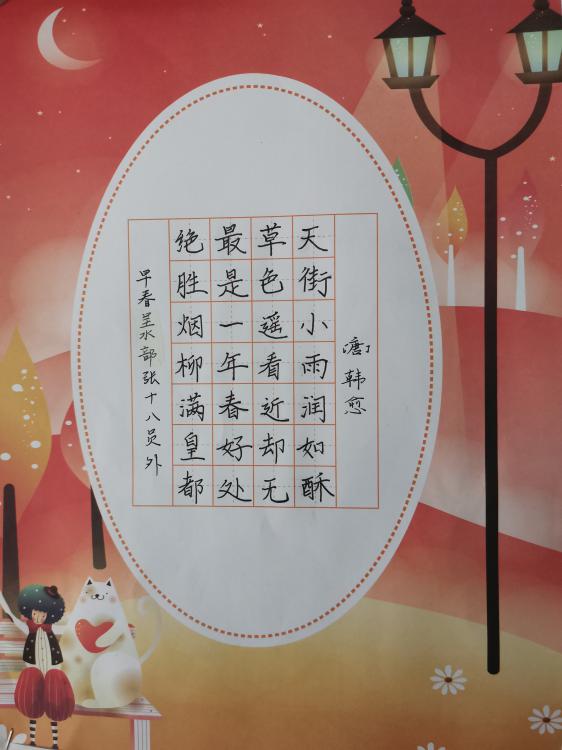 〔唐〕韩愈
天街小雨润如酥
草色遥看近却无
最是一年春好处
绝胜烟柳满皇都
早春呈水部张十八员外